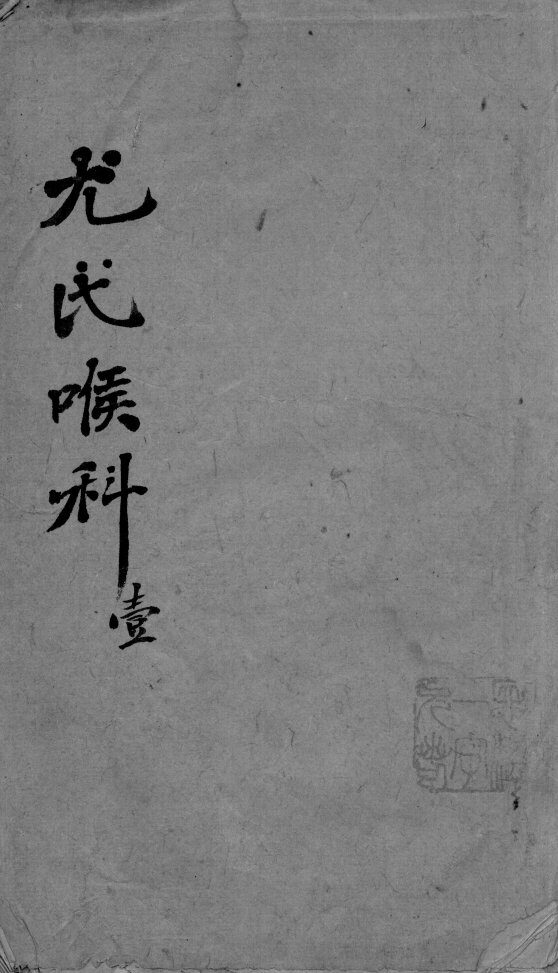 尤氏喉科壹